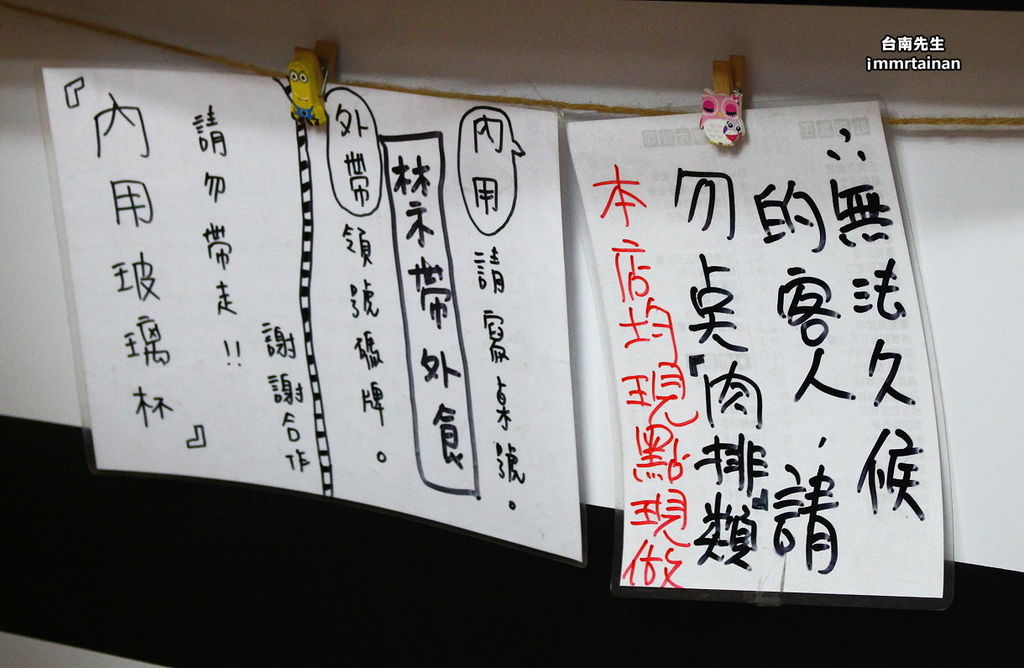 台南先生
immrtainan
無法久候
的客人，請
勿点『肉排』類
本店均現點現做
內用 請寫桌號。
禁帶外食
外帶 領號碼牌。
謝謝合作
請勿帶走!!
『內用玻璃杯』